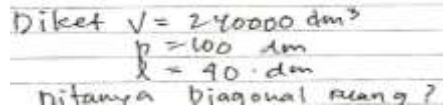 Diket V = 240000 dm³
p = 100 dm
l = 40 dm
Ditanya Diagonal ruang?